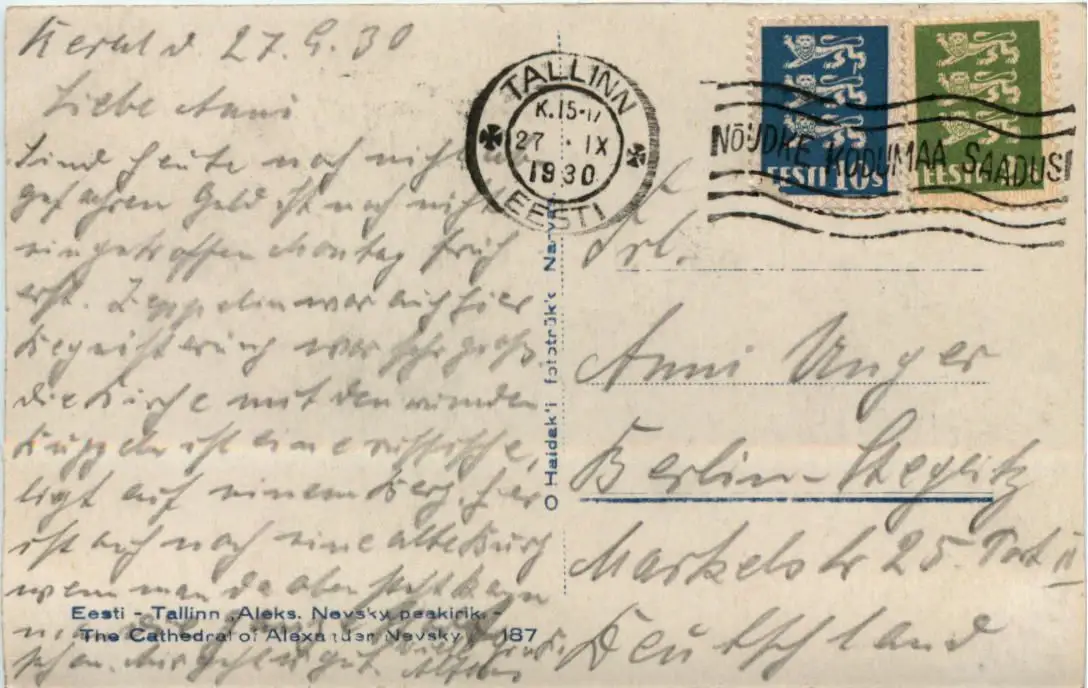 27. 9. 30
Liebe Anni
Sind heute noch nicht ab
gefahren Geld ist noch nicht
eingetroffen Montag früh
erst. Zeppelin war auch hier
Begeisterung war sehr groß
die Kirche mit den runden
Kuppeln ist eine russische,
ligt auf einem Berg. hier
ist auch noch eine alte Burg
wenn man da oben steht kann
man
sehen. Mir geht es gut.
viele Grüße
Eesti - Tallinn, Aleks. Nevsky peakirik. -
The Cathedral of Alexander Nevsky. 187
O Haidak'i fototrük'k Narva
TALLINN
K.15-17
27 · IX
1930
EESTI
NÕUDKE KODUMAA SAADUSI
EESTI 10s
EESTI
Frl.
Anni Unger
Berlin-Steglitz
Markelstr 25. Port II
Deutschland